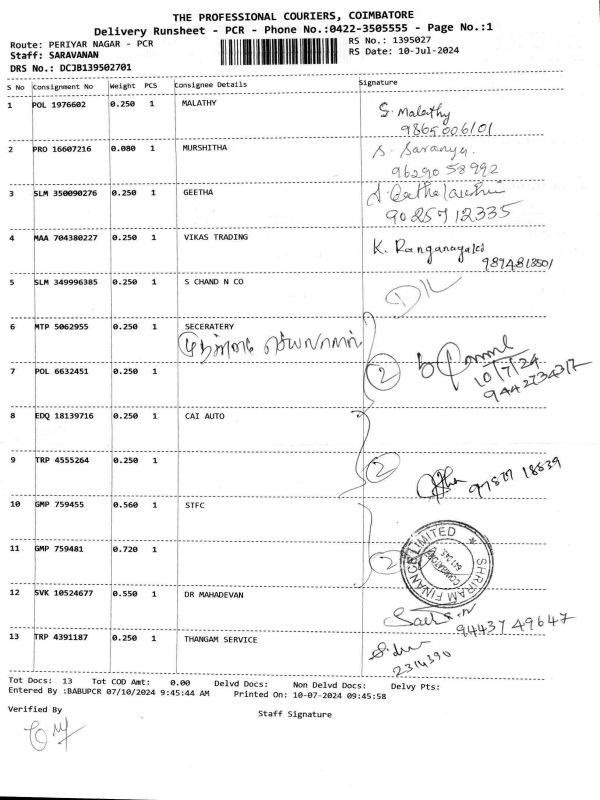 THE PROFESSIONAL COURIERS, COIMBATORE
Delivery Runsheet - PCR - Phone No.:0422-3505555 - Page No.:1
Route: PERIYAR NAGAR - PCR
RS No.: 1395027
Staff: SARAVANAN
RS Date: 10-Jul-2024
DRS No.: DCJB139502701
S No Consignment No Weight PCS Consignee Details Signature
1 POL 1976602 0.250 1 MALATHY
S. Malathy
9865006101
2 PRO 16607216 0.080 1 MURSHITHA
S. Saranya.
9629058992
3 SLM 350090276 0.250 1 GEETHA
9025712335
4 MAA 704380227 0.250 1 VIKAS TRADING
K. Ranganayaki
9894818501
5 SLM 349996385 0.250 1 S CHAND N CO
DIL
6 MTP 5062955 0.250 1 SECERATERY
செயலாளர்
7 POL 6632451 0.250 1
2
10/7/24
9442734317
8 EDQ 18139716 0.250 1 CAI AUTO
9 TRP 4555264 0.250 1
2
97877 18539
10 GMP 759455 0.560 1 STFC
11 GMP 759481 0.720 1
2
SHRIRAM FINANCE LIMITED
COIMBATORE
12 SVK 10524677 0.550 1 DR MAHADEVAN
94437 49647
13 TRP 4391187 0.250 1 THANGAM SERVICE
2314390
Tot Docs: 13 Tot COD Amt: 0.00 Delvd Docs: Non Delvd Docs: Delvy Pts:
Entered By :BABUPCR 07/10/2024 9:45:44 AM Printed On: 10-07-2024 09:45:58
Verified By
Staff Signature